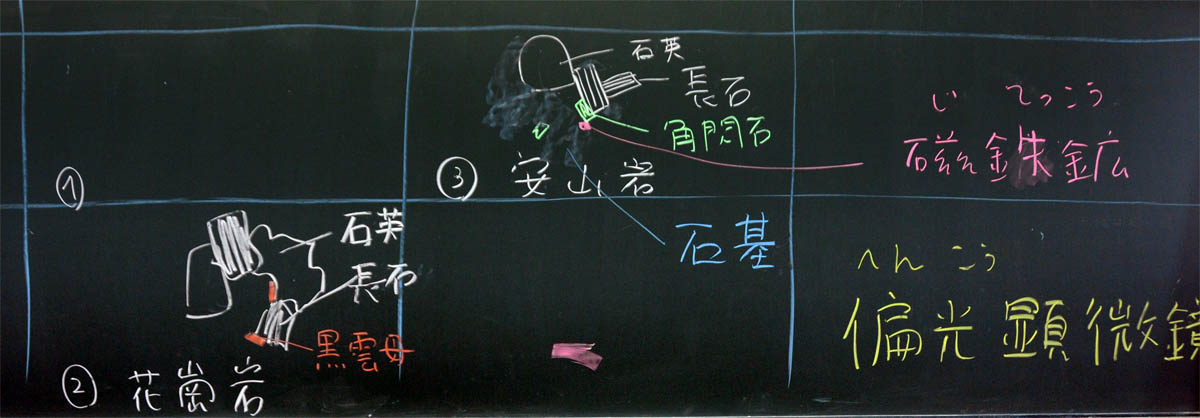 ①
② 花崗岩
石英
長石
黒雲母
③ 安山岩
石英
長石
角閃石
じ てっこう
磁鉄鉱
石基
へん こう
偏光顕微鏡